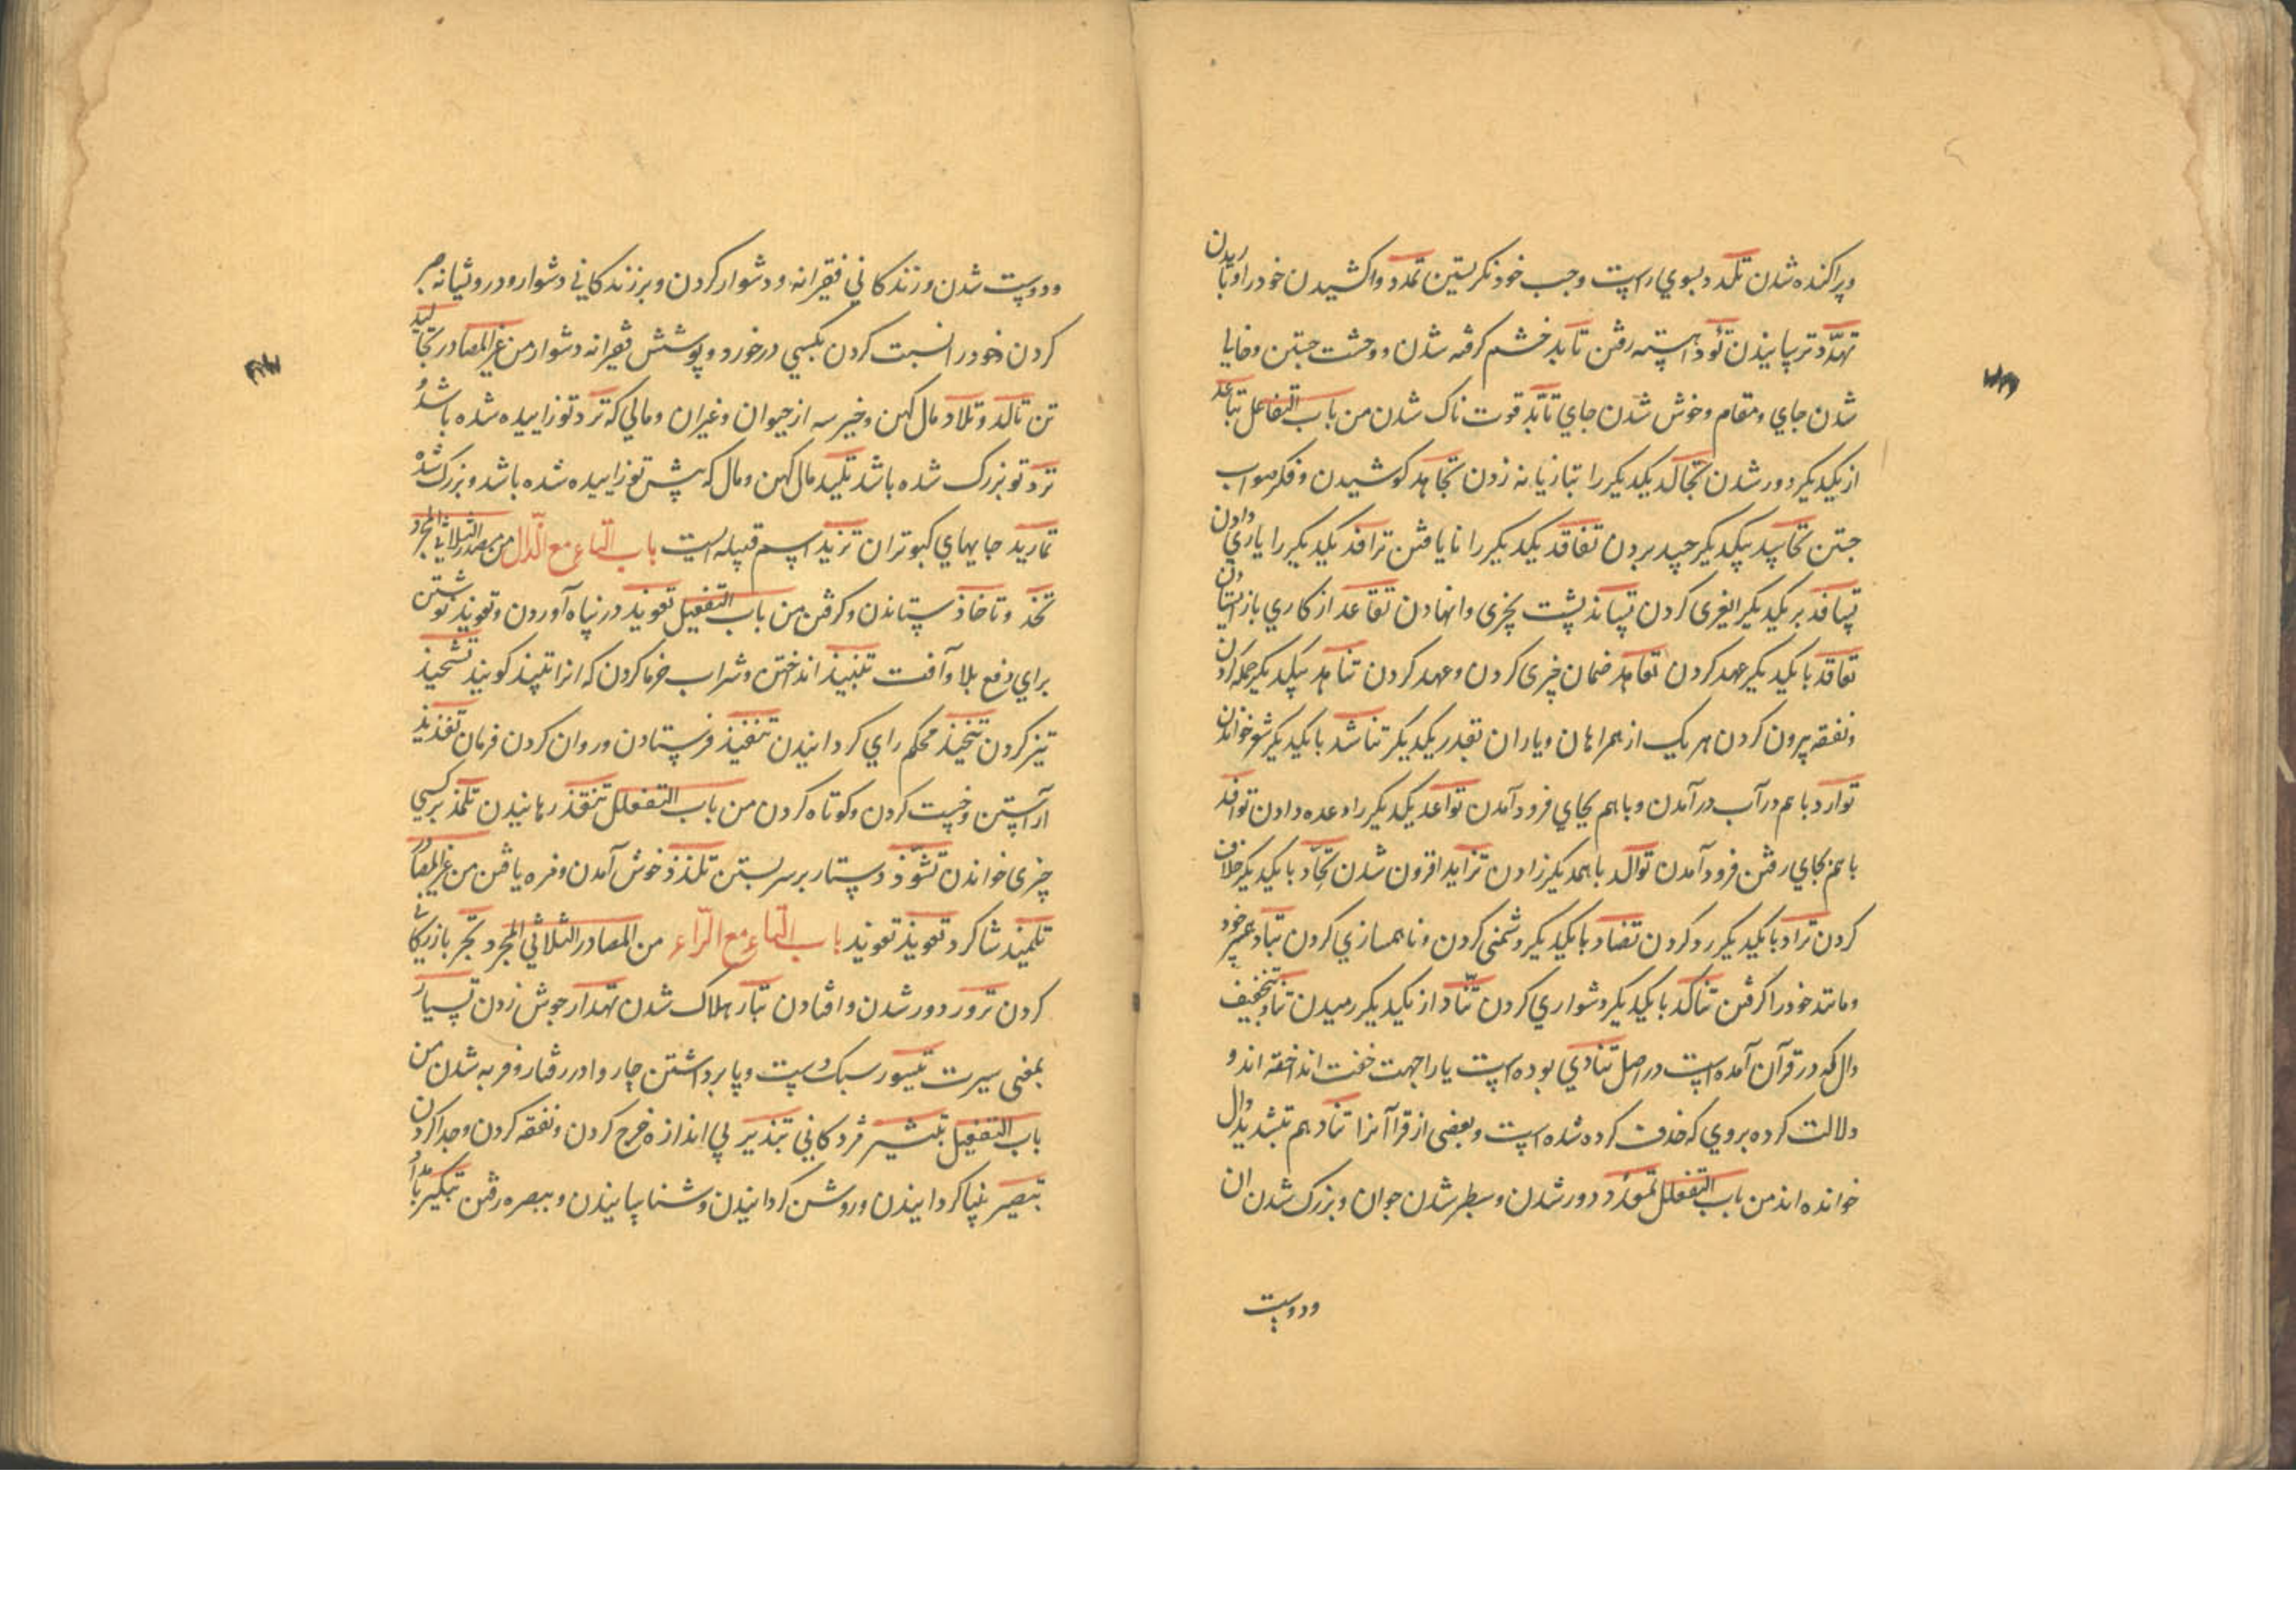 وپراکنده شدن تلدد بسوی راست و چپ خود نگریستن تمدد واکشیدن خود را وتا ریدن
تهدد ترسانیدن تؤد آهسته رفتن تابد خشم گرفته شدن و وحشت جستن وخالی
شدن جای و مقام و خوش شدن جای تأبد قوت ناک شدن من باب التفاعل تباعد
از یکدیگر دور شدن تجالد یکدیگر را تبازیانه زدن تجاهد کوشیدن و فکر صواب
جستن تحاسد بیکدیگر حسد بردن تفاقد یکدیگر را نایافتن ترافد یکدیگر را یاری دادن
تسافد بر یکدیگر کردن تساند پشت بچیزی وانهادن تقاعد از کاری باز ایستادن
تعاقد با یکدیگر عهد کردن تعاهد ضمان چیزی کردن و عهد کردن تناهد بیکدیگر حمله کردن
ونفقه بیرون کردن هر یک از همراهان و یاران بقدر یکدیگر تناشد با یکدیگر شعر خواندن
توارد با هم در آب در آمدن و با هم بجای فرود آمدن تواعد یکدیگر را وعده دادن توافد
با هم بجای رفتن فرود آمدن توالد با همدیگر زادن تزاید افزون شدن تحاد با یکدیگر خلاف
کردن تراد با یکدیگر رد کردن تضاد با یکدیگر دشمنی کردن و ناهمسازی کردن تباد خود
ومانند خود را گرفتن تناکد با یکدیگر دشواری کردن تناد از یکدیگر رمیدن تناد بتخفیف
دال که در قرآن آمده است در اصل تنادی بوده است یا را جهت خفت انداخته اند و
دلالت کرده بروی که حذف کرده شده است و بعضی از قرا آنرا تناد هم بتشدید دال
خوانده اند من باب التفعلل تمعدد دور شدن و سطبر شدن جوان و بزرگ شدن آن
ودوست
ودوست شدن و زندگانی فقیرانه و دشوار کردن و بر زندگانی دشوار و درویشانه صبر
کردن وخود را نسبت کردن بکسی در خورد و پوشش فقیرانه دشوار من غیر المصادر تجالید
تن تالد و تلاد مال کهن و خیر سه از حیوان و غیران و مالی که نزد تو زاییده شده باشد و
نزد تو بزرگ شده باشد تلید مال کهن و مال که پیش تو زاییده شده باشد و بزرگ شده
تمارید جایهای کبوتران تزید اسم قبیله ایست باب التاء مع الذال من مصدر الثلاثی المجرد
تخذ و تاخاذ ستاندن و گرفتن من باب التفعیل تعویذ در پناه آوردن و تعویذ نوشتن
برای دفع بلا و آفت تنبیذ انداختن و شراب خرما کردن که انرا نبیذ گویند تشحیذ
تیز کردن تنجیذ محکم رای گردانیدن تنفیذ فرستادن و روان کردن فرمان تقذیذ
آراستن و چست کردن و کوتاه کردن من باب التفعلل تنقذ رهانیدن تلمذ بر کسی
چیزی خواندن تشوذ دستار بر سر بستن تلذذ خوش آمدن و مزه یافتن من غیر المصادر
تلمیذ شاگرد تعویذ تعویذ باب التاء مع الراء من المصادر الثلاثی المجرد تجر بازرگانی
کردن ترور دور شدن و افتادن تبار هلاک شدن تهدار جوش زدن تسیار
بمعنی سیرت تیسور سبک دست و پا برداشتن چاروا در رفتار و فربه شدن من
باب التفعیل تبشیر مژدگانی تبذیر بی اندازه خرج کردن و نفقه کردن وجدا کردن
تبصیر بینا گردانیدن و روشن گردانیدن و شناسانیدن و ببصره رفتن تبکیر بامداد